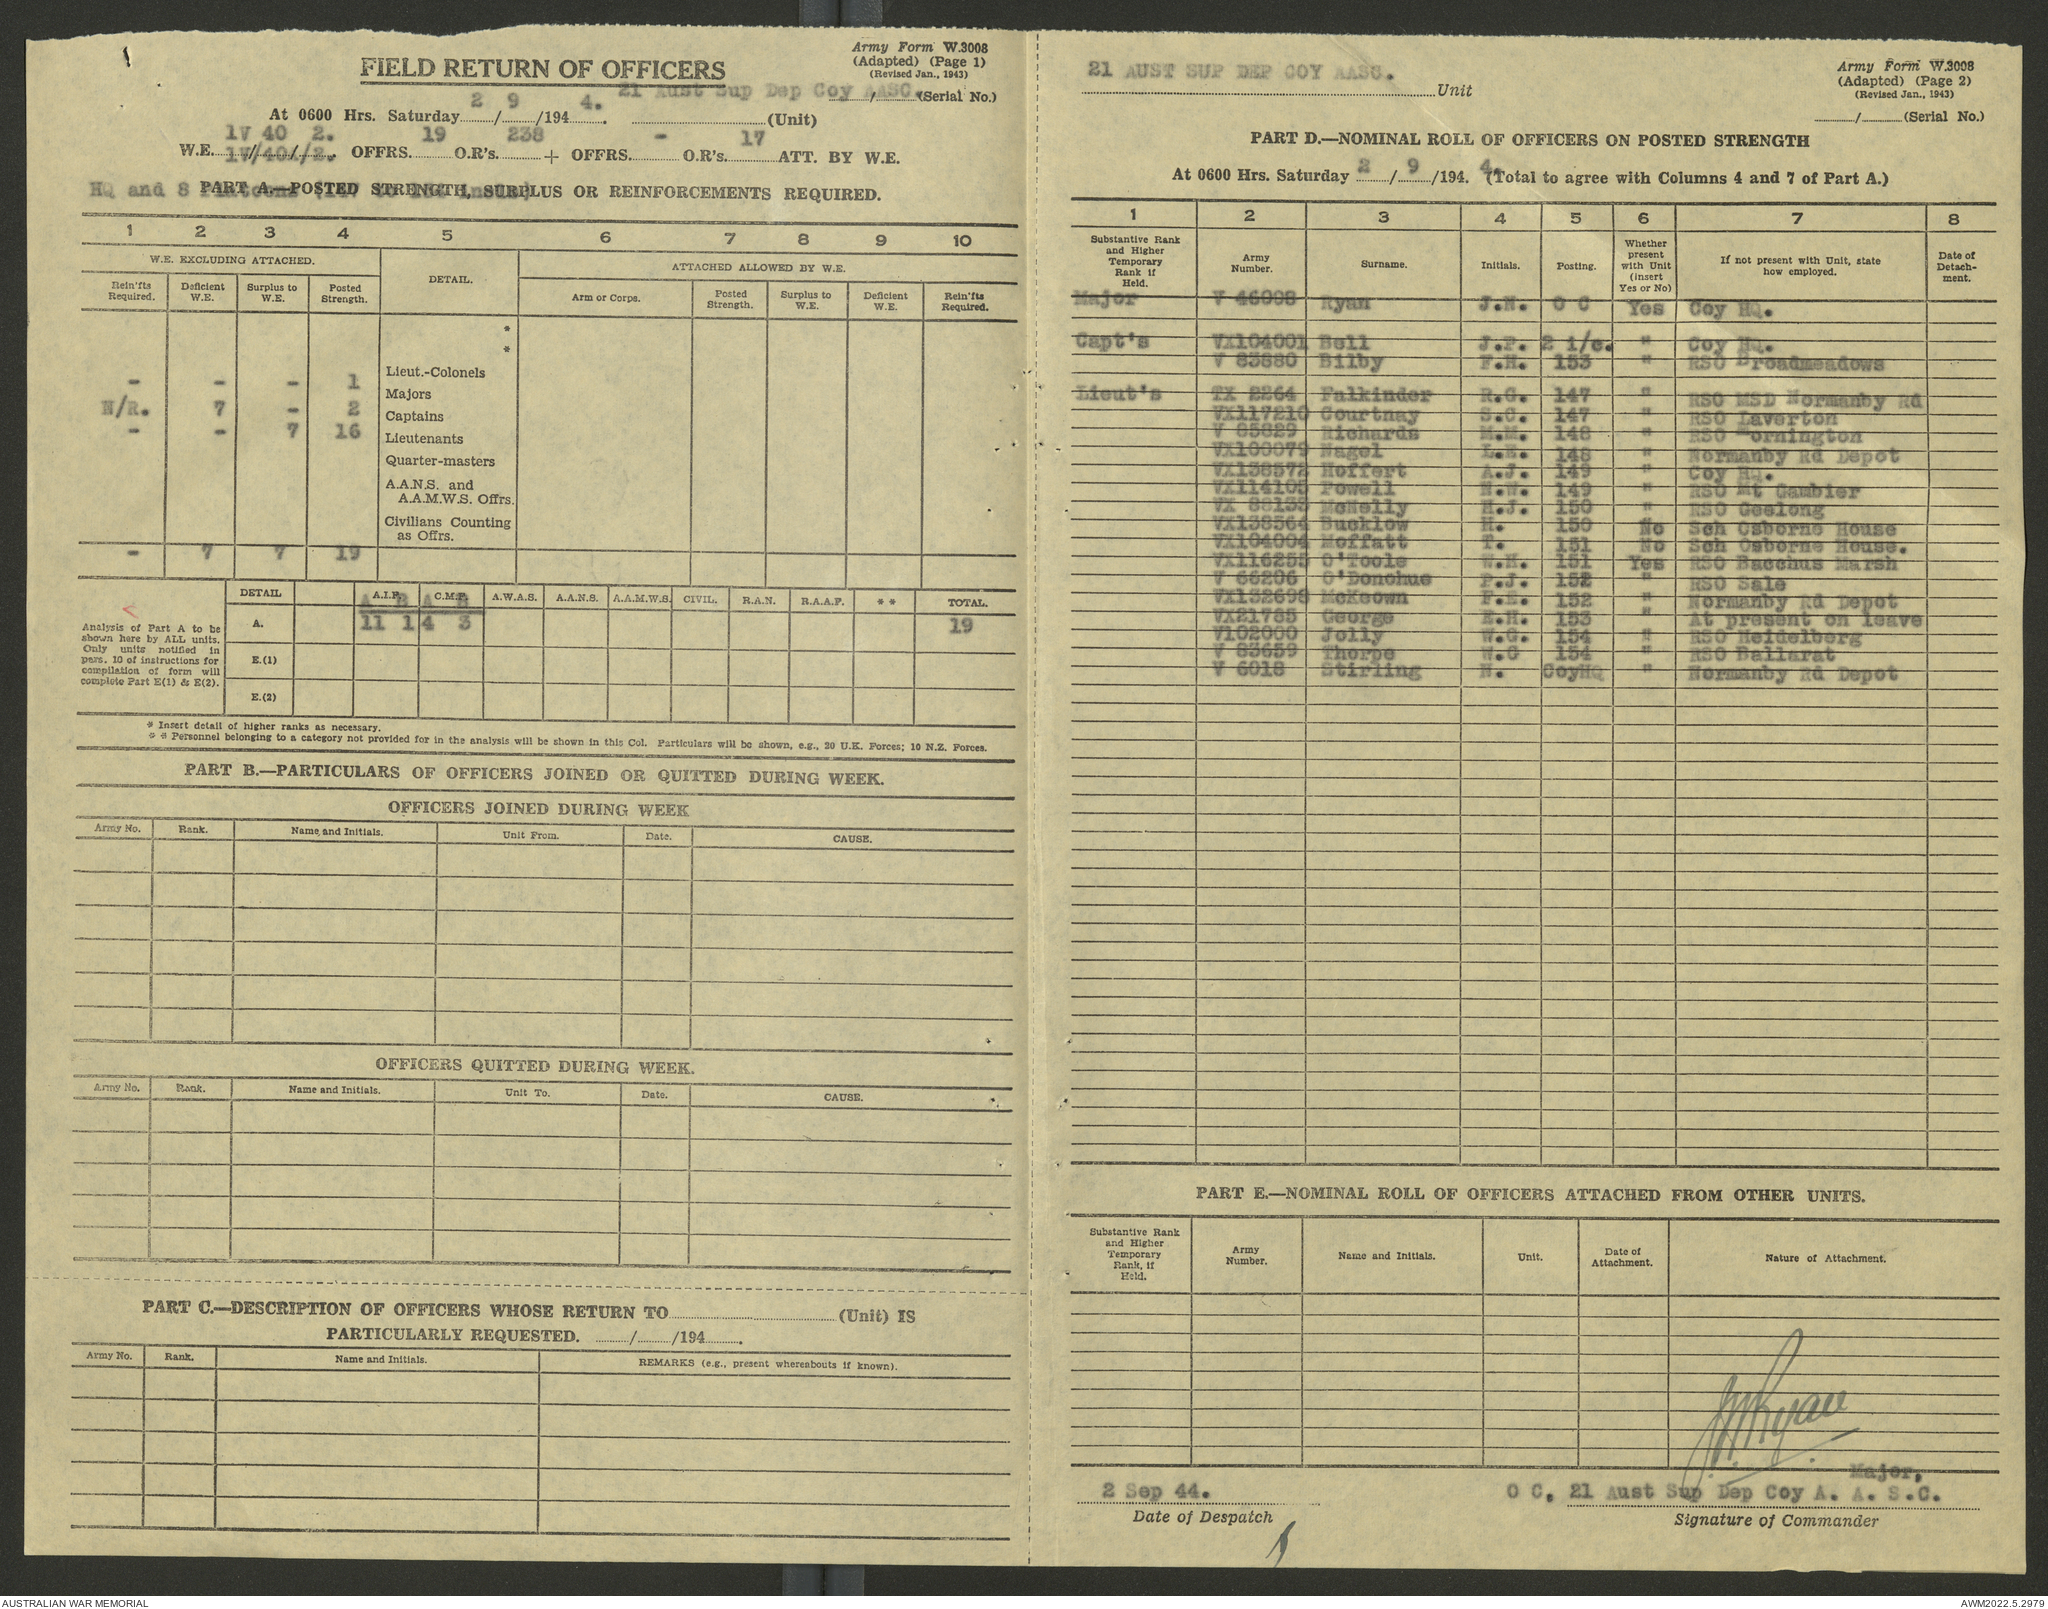 Army Form W.3008
(Adapted) (Page 1)
(Revised Jan., 1943)
FIELD RETURN OF OFFICERS
21 Aust Sup Dep Coy AASC.
....../......(Serial No.)
At 0600 Hrs. Saturday 2/9/1944. (Unit)
1V 40 2. 19 238 - 17
W.E. 1V/401/2. OFFRS. O.R's. + OFFRS. O.R's. ATT. BY W.E.
HQ and 8 Platoons (147 to 154 inclus)
PART A.—POSTED STRENGTH, SURPLUS OR REINFORCEMENTS REQUIRED.
1 2 3 4 5 6 7 8 9 10
W.E. EXCLUDING ATTACHED. DETAIL. ATTACHED ALLOWED BY W.E.
Rein'fts Required. Deficient W.E. Surplus to W.E. Posted Strength. Arm or Corps. Posted Strength. Surplus to W.E. Deficient W.E. Rein'fts Required.
*
*
Lieut.-Colonels
- - - 1 Majors
N/R. 7 - 2 Captains
- - 7 16 Lieutenants
Quarter-masters
A.A.N.S. and
A.A.M.W.S. Offrs.
Civilians Counting
as Offrs.
- 7 7 19
DETAIL A.I.F. C.M.F. A.W.A.S. A.A.N.S. A.A.M.W.S. CIVIL. R.A.N. R.A.A.F. * * TOTAL.
A B A B
<
A. 11 1 4 3 19
E.(1)
E.(2)
Analysis of Part A to be
shown here by ALL units.
Only units notified in
para. 10 of instructions for
compilation of form will
complete Part E(1) & E(2).
* Insert detail of higher ranks as necessary.
* * Personnel belonging to a category not provided for in the analysis will be shown in this Col. Particulars will be shown, e.g., 20 U.K. Forces; 10 N.Z. Forces.
PART B.—PARTICULARS OF OFFICERS JOINED OR QUITTED DURING WEEK.
OFFICERS JOINED DURING WEEK
Army No. Rank. Name and Initials. Unit From. Date. CAUSE.
OFFICERS QUITTED DURING WEEK.
Army No. Rank. Name and Initials. Unit To. Date. CAUSE.
PART C.—DESCRIPTION OF OFFICERS WHOSE RETURN TO (Unit) IS
PARTICULARLY REQUESTED. ....../....../194.......
Army No. Rank. Name and Initials. REMARKS (e.g., present whereabouts if known).
21 AUST SUP DEP COY AASC.
Unit
Army Form W.3008
(Adapted) (Page 2)
(Revised Jan., 1943)
....../......(Serial No.)
PART D.—NOMINAL ROLL OF OFFICERS ON POSTED STRENGTH
At 0600 Hrs. Saturday 2/9/194. 4. (Total to agree with Columns 4 and 7 of Part A.)
1 2 3 4 5 6 7 8
Substantive Rank and Higher Temporary Rank if Held. Army Number. Surname. Initials. Posting. Whether present with Unit (insert Yes or No) If not present with Unit, state how employed. Date of Detachment.
Major V 46008 Ryan J.N. O C Yes Coy HQ.
Capt's VX104001 Bell J.P. 2 i/c. " Coy HQ.
V 83880 Bilby F.H. 153 " RSO Broadmeadows
Lieut's TX 2264 Falkinder R.G. 147 " RSO MSD Normanby Rd
VX117210 Courtnay S.C. 147 " RSO Laverton
V 85829 Richards M.M. 148 " RSO Mornington
VX100079 Nagel L.E. 148 " Normanby Rd Depot
VX138572 Hoffert A.J. 149 " Coy HQ.
VX114105 Powell N.W. 149 " RSO Mt Gambier
VX 88133 McNelly H.J. 150 " RSO Geelong
VX138564 Bucklow H. 150 No Sch Osborne House
VX104004 Moffatt T. 151 No Sch Osborne House.
VX116255 O'Toole W.H. 151 Yes RSO Bacchus Marsh
V 66206 O'Donohue P.J. 152 " RSO Sale
VX132698 McKeown F.E. 152 " Normanby Rd Depot
VX21785 George E.H. 153 " At present on leave
V102000 Jolly W.G. 154 " RSO Heidelberg
V 83659 Thorpe W.G 154 " RSO Ballarat
V 6018 Stirling N. CoyHQ " Normanby Rd Depot
PART E.—NOMINAL ROLL OF OFFICERS ATTACHED FROM OTHER UNITS.
Substantive Rank and Higher Temporary Rank, if Held. Army Number. Name and Initials. Unit. Date of Attachment. Nature of Attachment.
J.N. Ryan
Major,
2 Sep 44. O C, 21 Aust Sup Dep Coy A. A. S.C.
Date of Despatch Signature of Commander
AUSTRALIAN WAR MEMORIAL AWM2022.5.2979